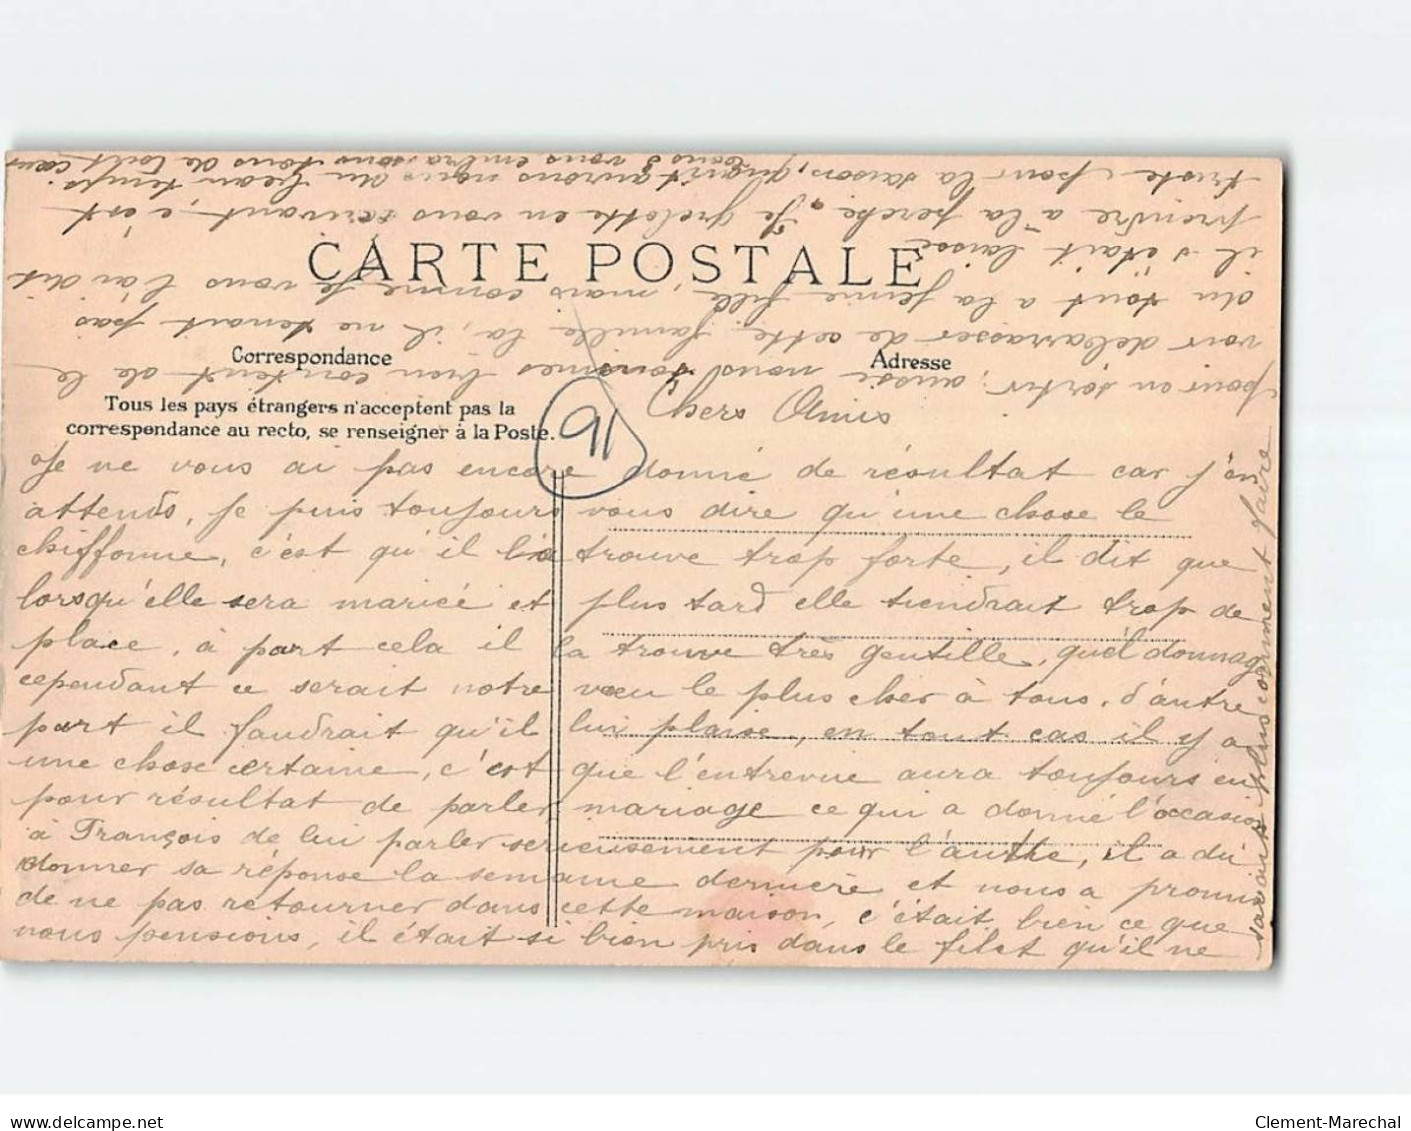 CARTE POSTALE
Correspondance
Adresse
Tous les pays étrangers n'acceptent pas la
correspondance au recto, se renseigner à la Poste.
91
Chers Amis
Je ne vous ai pas encore donné de résultat car j'en
attends, je puis toujours vous dire qu'une chose le
chiffonne, c'est qu'il l'a trouve trop forte, il dit que
lorsqu'elle sera mariée et plus tard elle tiendrait trop de
place, à part cela il la trouve très gentille, quel dommage
cependant ce serait notre vœu le plus cher à tous, d'autre
part il faudrait qu'il lui plaise, en tout cas il y a
une chose certaine, c'est que l'entrevue aura toujours eu
pour résultat de parler mariage ce qui a donné l'occasion
à François de lui parler serieusement pour l'autre, il a dû
donner sa réponse la semaine dernière et nous a promis
de ne pas retourner dans cette maison, c'était bien ce que
nous pensions, il était si bien pris dans le filet qu'il ne
savait plus comment faire
pour en sortir, aussi nous sommes bien content de le
voir debarrasser de cette famille là, il ne tenait pas
du tout a la jeune fille, mais comme je vous l'ai dit
il s'était laissé
prendre à la perche. Je grelotte en vous écrivant, c'est
triste pour la saison, quant aurons nous du beau temps.
tous 3 vous embrassons tous de tout cœur
Clement-Marechal
www.delcampe.net